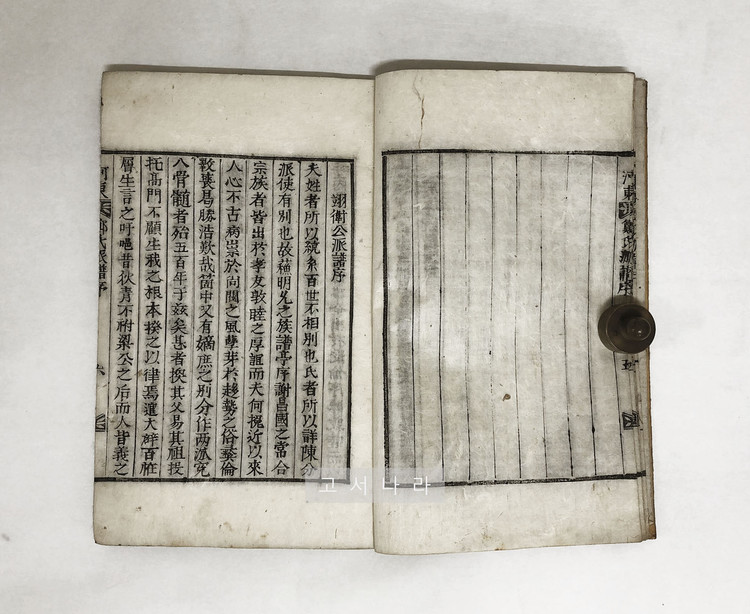 河東鄭氏派譜序
五
翊衛公派譜序
夫姓者所以統系百世不相別也氏者所以詳陳分
派使有別也故蘇明允之族譜亭序謝昌國之常合
宗族者皆出於孝友敦睦之厚誼而夫何挽近以來
人心不古病祟於向闕之風孽芽於趍勢之俗彛倫
斁喪曷勝浩歎哉箇中又有嫡庶之別分作兩派
骨髓者殆五百年于玆矣甚者換其父易其祖投
托高門不顧生我之根本揆之以律焉逭大辟百
層生言之吁昔狄靑不祔梁公之后而人皆義之
河東鄭氏派譜序
六
고서나라